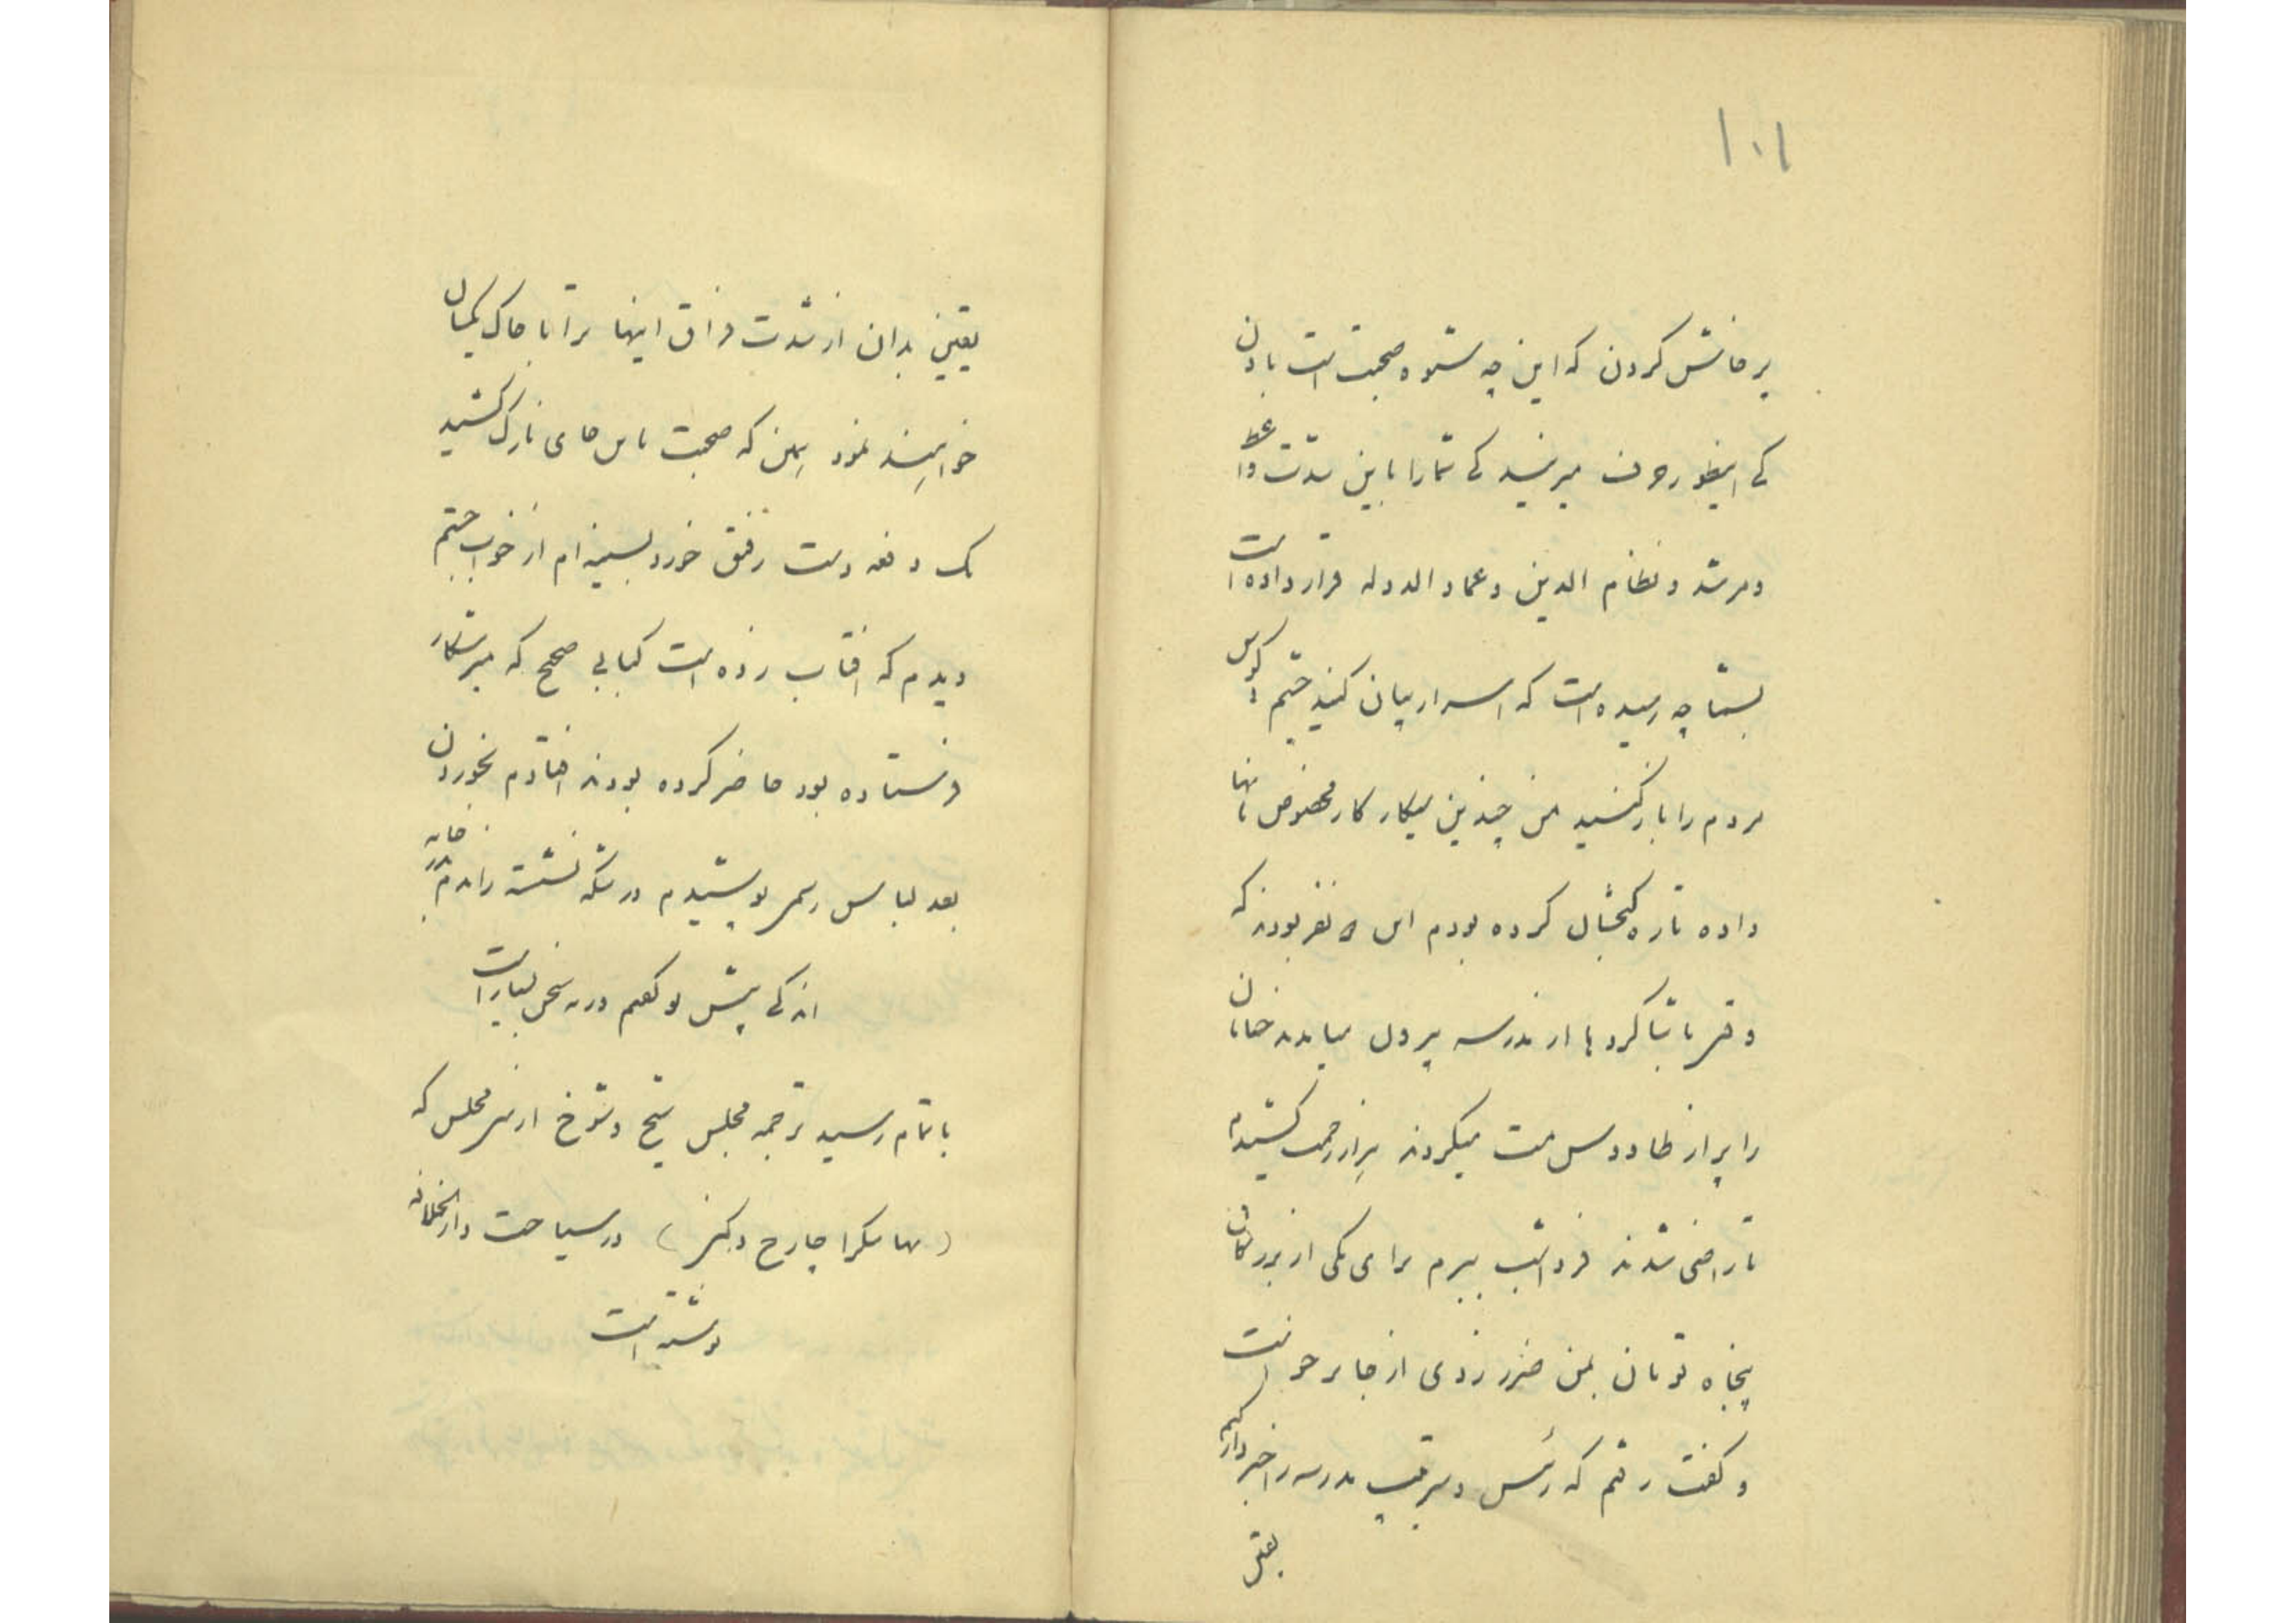 ۱۰۱
پرخاش کردن که این چه شیوه صحبت است با ودن
کی اینطور حرف میزنید کی شما را باین شدت واعظ
و مرشد و نظام الدین و عماد الدوله قرار داده است
بشما چه رسیده است که اسرار بیان کنید چشم و گوش
مردم را باز کنید من چندین سیکار کار مخصوص بانها
داده تازه کجشال کرده بودم این ۵ نفر بودند که
وقتی با شاگردها از مدرسه بیرون میایدند خیابان
را پر از طاووس مست میکردند هزار زحمت کشیدم
تا راضی شدند فردا شب ببرم برای یکی از بزرگان
پنجاه تومان بمن ضرر زدی از جا برخواست
و گفت رفتم که رئیس و سرتیپ مدرسه را خبردار کنم
یقین
یقین بدان از شدت فراق اینها ترا با خاک یکسان
خواهند نمود همین که صحبت باین جای نازک کشید
یک دفعه دست رفیق خورد بسینه ام از خواب جستم
دیدم که افتاب زده است کبابی صحیح که میرشکار
فرستاده بود حاضر کرده بودند افتادم بخوردن
بعد لباس رسمی پوشیدم درشکه نشسته راندم بدر خانه
اندکی پیش تو گفتم ... ورنه سخن بسیار است
باتمام رسید ترجمه مجلس شیخ و شوخ از سی مجلس که
( ... ) در سیاحت دارالخلافه
نوشته است